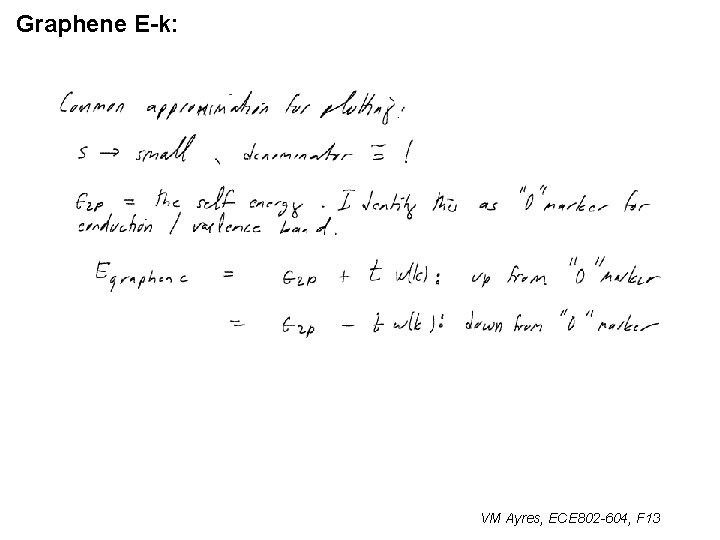 Graphene E-k:
Common approximation for plotting:
s → small, denominator ≡ 1
ϵ2p = the self energy. Identify this as "0" marker for
conduction / valence band.
Egraphene = ϵ2p + t w(k): up from "0" marker
= ϵ2p - t w(k): down from "0" marker
VM Ayres, ECE802-604, F13